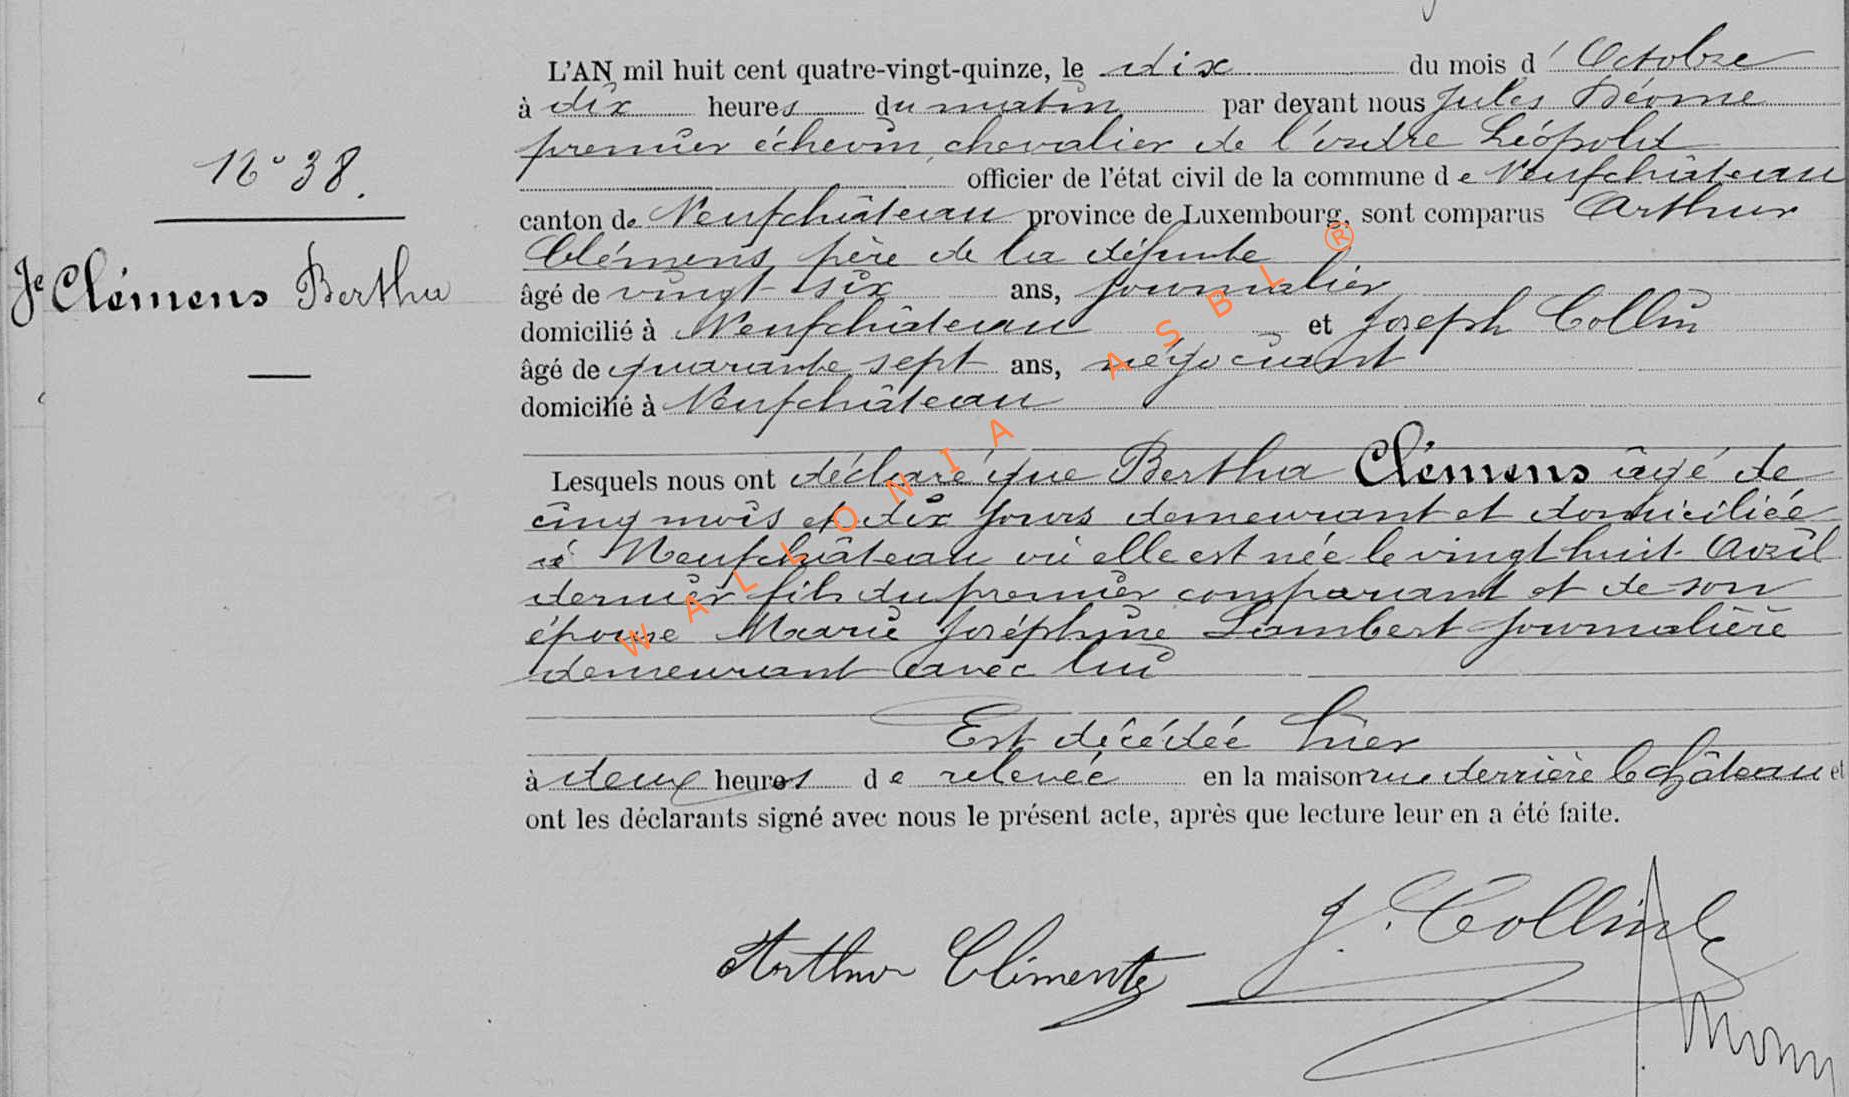 L'AN mil huit cent quatre-vingt-quinze, le dix du mois d'Octobre
à dix heures du matin par devant nous Jules Déome
premier échevin, chevalier de l'ordre Léopold
officier de l'état civil de la commune de Neufchâteau
N° 38.
canton de Neufchâteau province de Luxembourg, sont comparus Arthur
Clémens père de la défunte
Je Clémens Bertha
âgé de vingt six ans, journalier
domicilié à Neufchâteau et Joseph Collin
âgé de quarante sept ans, négociant
domicilié à Neufchâteau
Lesquels nous ont déclaré que Bertha Clémens âgé de
cinq mois et dix jours demeurant et domiciliée
à Neufchâteau où elle est née le vingt huit Avril
dernier fils du premier comparant et de son
épouse Marie Joséphine Lambert journalière
demeurant avec lui
Est décédée hier
à deux heures de relevée en la maison rue derrière le château et
ont les déclarants signé avec nous le présent acte, après que lecture leur en a été faite.
Arthur Clémentz J. Collin
WALLONIA ASBL ®